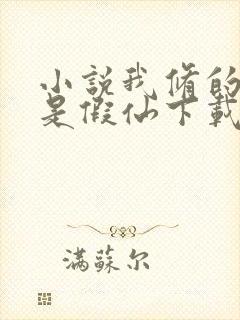 小說我修的
是假仙下載
滿蘇尔